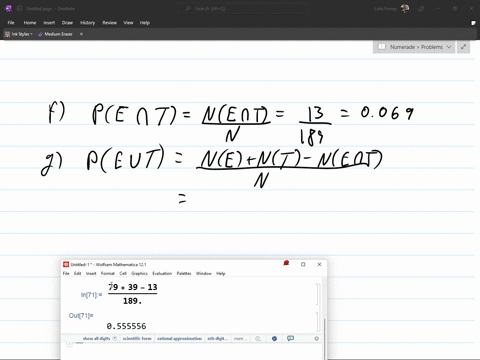 Untitled page - OneNote
Search
File Home Insert Draw History Review View Help
Ink Styles Medium Eraser
Numerade > Problems
f) P(E ∩ T) = N(E∩T)/N = 13/189 = 0.069
g) P(E ∪ T) = N(E)+N(T)-N(E∩T)/N
=
Untitled-1 * - Wolfram Mathematica 12.1
File Edit Insert Format Cell Graphics Evaluation Palettes Window Help
In[71]:= 79 + 39 - 13
189.
Out[71]=
0.555556
show all digits scientific form rational approximation nth digit...